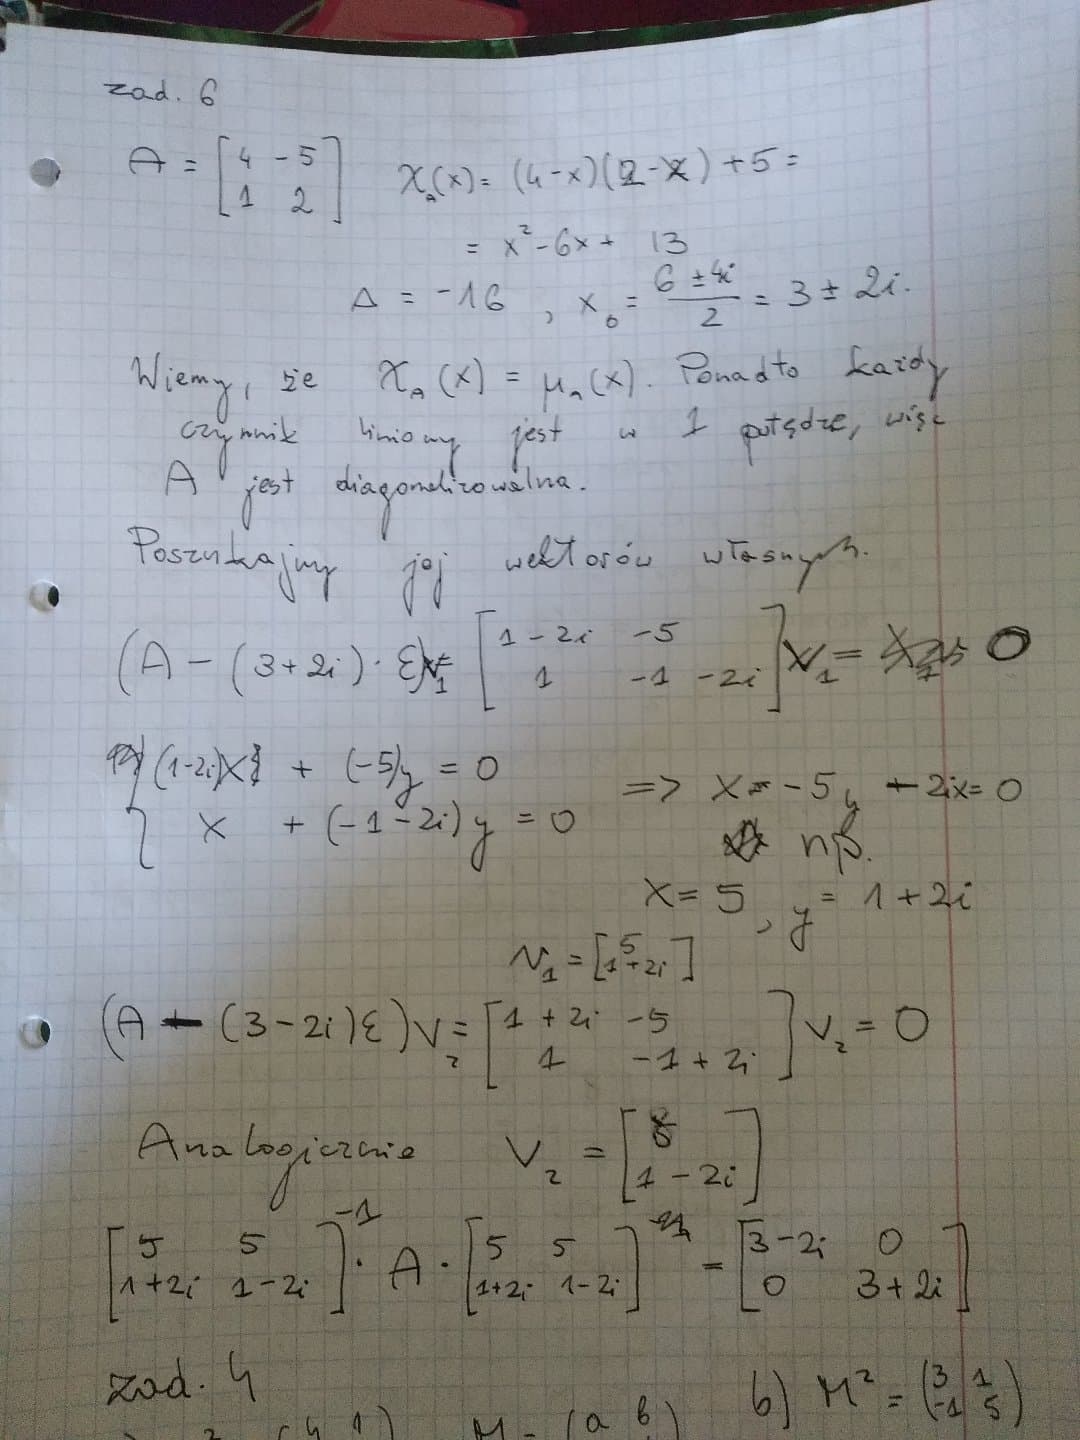 zad. 6
A = [4 -5; 1 2] χ_A(x) = (4-x)(2-x) + 5 =
= x² - 6x + 13
Δ = -16 , x_0 = (6 ± 4i)/2 = 3 ± 2i.
Wiemy, że χ_A(x) = μ_A(x). Ponadto każdy
czynnik liniowy jest w 1 potędze, więc
A jest diagonalizowalna.
Poszukajmy jej wektorów własnych.
(A - (3+2i)·ε)v_1 = [1-2i -5; 1 -1-2i] v_1 = 0
{ (1-2i)x + (-5)y = 0
x + (-1-2i)y = 0 => x - 5y - 2ix = 0
np.
x = 5 , y = 1+2i
v_1 = [5; 1+2i]
(A - (3-2i)ε)v_2 = [1+2i -5; 1 -1+2i] v_2 = 0
Analogicznie v_2 = [5; 1-2i]
[5 5; 1+2i 1-2i]^-1 · A · [5 5; 1+2i 1-2i] = [3-2i 0; 0 3+2i]
zad. 4 b) M² = (3 1; -1 5)